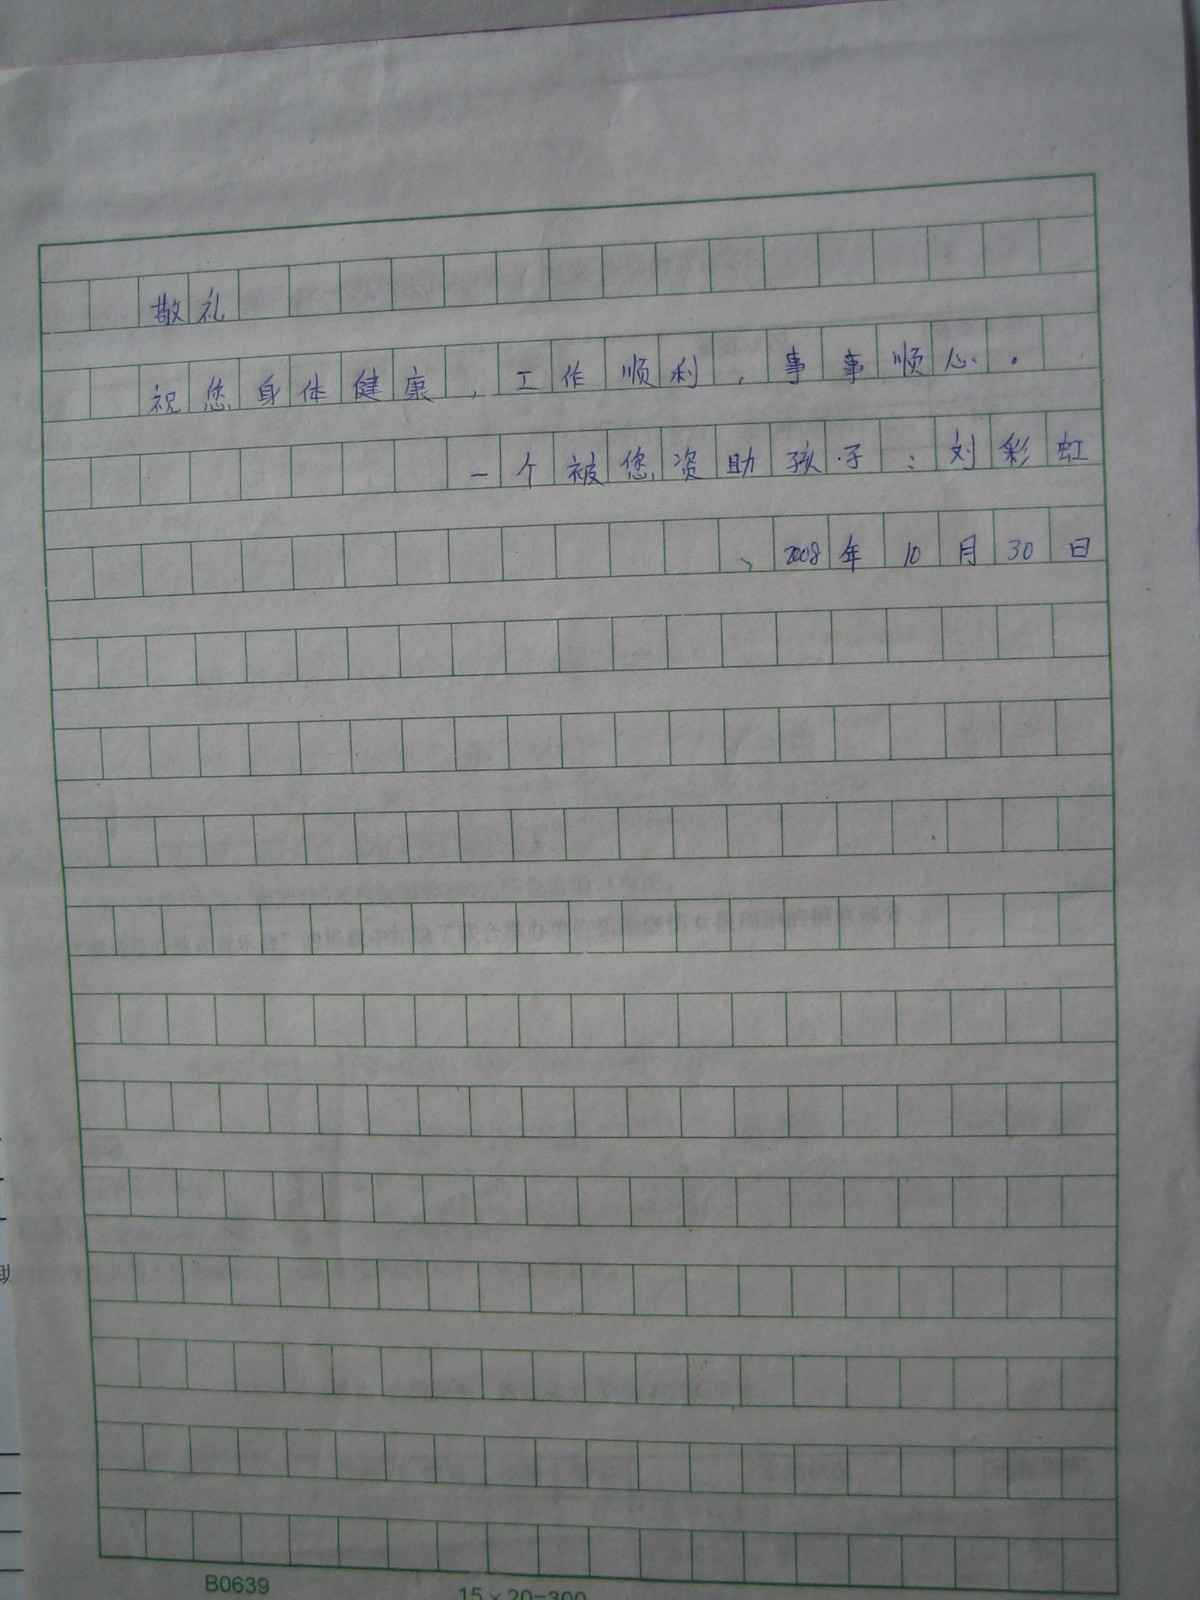 敬礼
祝您身体健康，工作顺利，事事顺心。
一个被您资助孩子：刘彩虹
、2008年10月30日
B0639
15×20=300